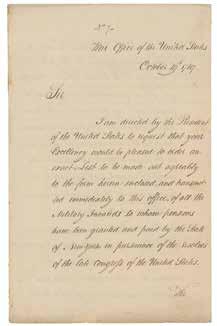 War Office of the United States
October 19th, 1789
Sir
I am directed by the President
of the United States to request that your
Excellency would be pleased to order an
exact List to be made out agreeably
to the form herein enclosed, and transmit-
ted immediately to this office, of all the
Military Invalids to whom pensions
have been granted and paid by the State
of New York in pursuance of the resolves
of the late Congress of the United States.
The